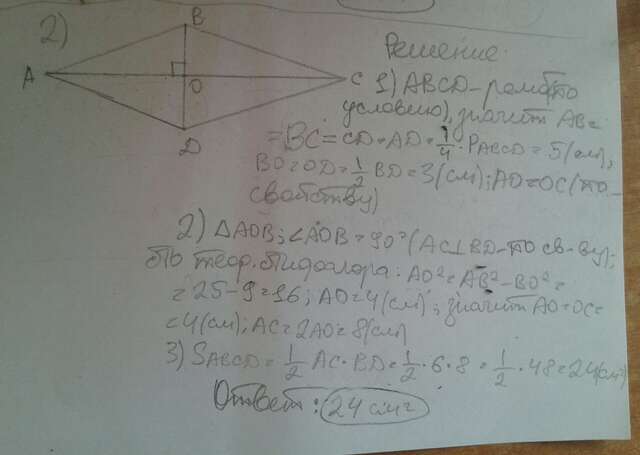 2)
B
A
O
C
D
Решение:
1) ABCD – ромб (по
условию), значит AB=
=BC=CD=AD=1/4·P ABCD=5(см),
BO=OD=1/2 BD=3(см); AO=OC(по
свойству)
2) △AOB; ∠AOB=90°(AC⊥BD–по св-ву);
По теор. Пифагора: AO²=AB²-BO²=
=25-9=16; AO=4(см); значит AO=OC=
=4(см); AC=2AO=8(см)
3) S ABCD=1/2 AC·BD=1/2·6·8=1/2·48=24(см²)
Ответ: 24 см²